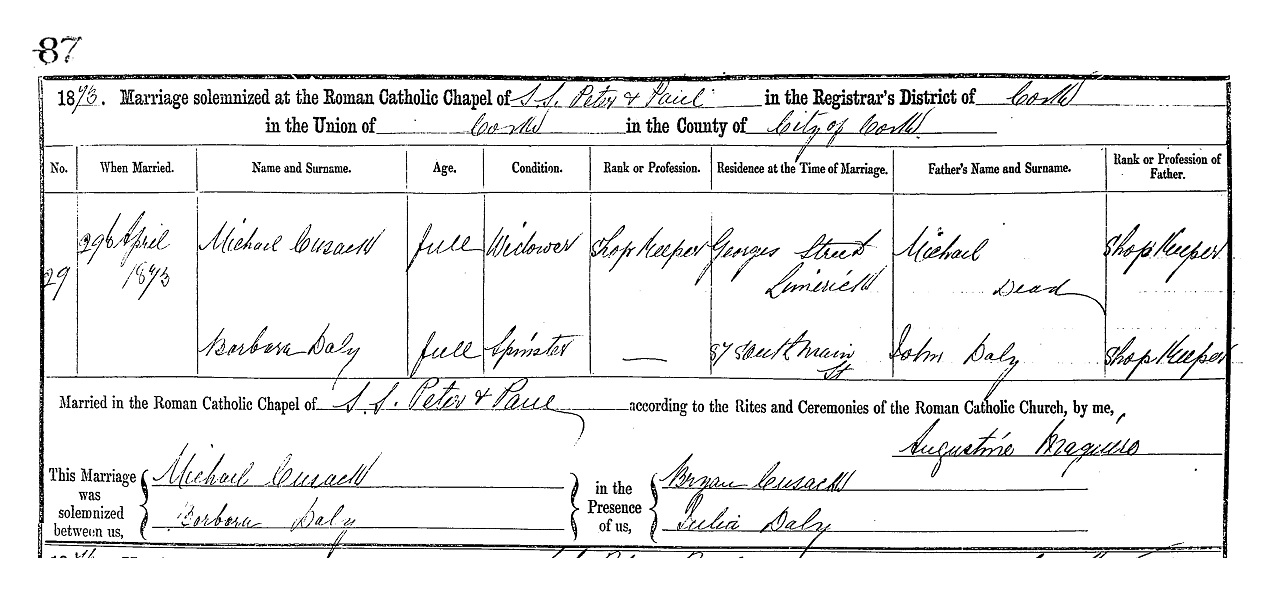 87
1873. Marriage solemnized at the Roman Catholic Chapel of S.S. Peter & Paul in the Registrar's District of Cork
in the Union of Cork in the County of City of Cork.
No. When Married. Name and Surname. Age. Condition. Rank or Profession. Residence at the Time of Marriage. Father's Name and Surname. Rank or Profession of Father.
29 29th April 1873 Michael Cusack full Widower Shop Keeper Georges Street Limerick Michael Dead Shop Keeper
Barbara Daly full Spinster — 87 South Main St John Daly Shop Keeper
Married in the Roman Catholic Chapel of S.S. Peter & Paul according to the Rites and Ceremonies of the Roman Catholic Church, by me,
Augustine Maguire
This Marriage was solemnized between us, Michael Cusack in the Presence of us, Bryan Cusack
Barbara Daly Julia Daly